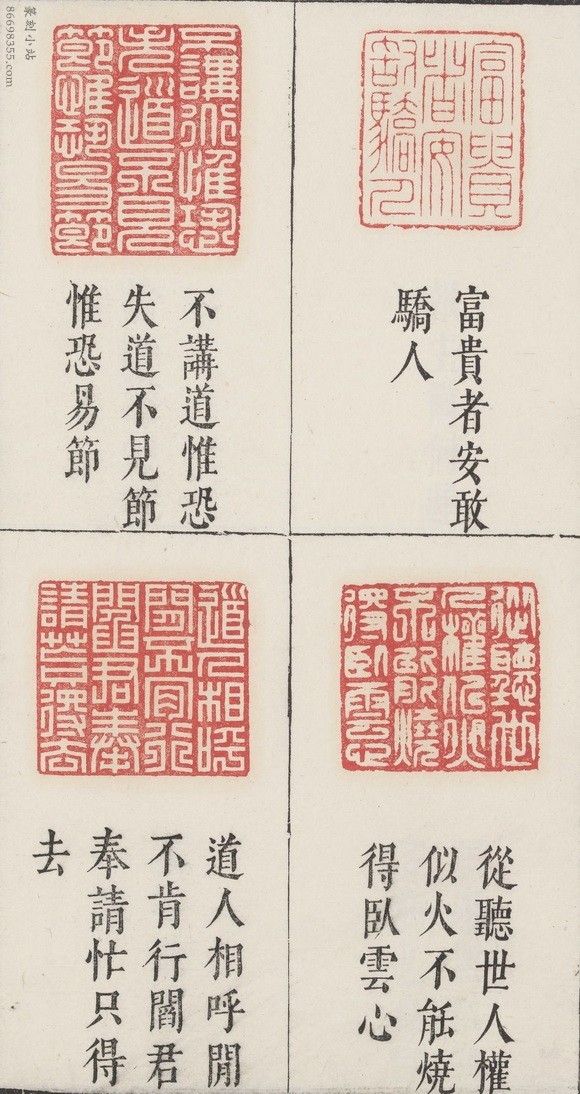 富貴者安敢
驕人
不講道惟恐
失道不見節
惟恐易節
從聽世人權
似火不能燒
得臥雲心
道人相呼閒
不肯行閻君
奉請忙只得
去
篆刻小站
86698355.com